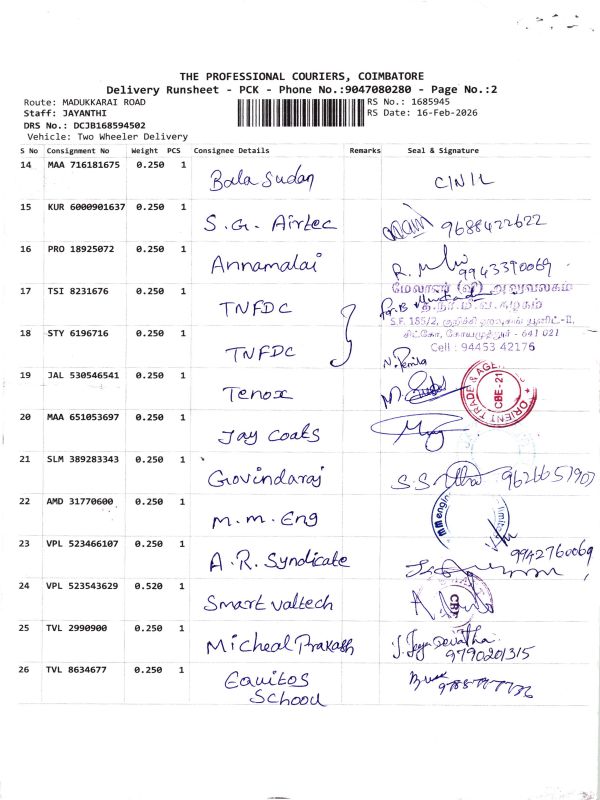 THE PROFESSIONAL COURIERS, COIMBATORE
Delivery Runsheet - PCK - Phone No.:9047080280 - Page No.:2
Route: MADUKKARAI ROAD
RS No.: 1685945
Staff: JAYANTHI
RS Date: 16-Feb-2026
DRS No.: DCJB168594502
Vehicle: Two Wheeler Delivery
S No Consignment No Weight PCS Consignee Details Remarks Seal & Signature
14 MAA 716181675 0.250 1 Bala Sudan C/N/L
15 KUR 6000901637 0.250 1 S.G. Airtec 9688422622
16 PRO 18925072 0.250 1 Annamalai 9943390069
17 TSI 8231676 0.250 1 TNFDC
மேலாளர் (வி) அலுவலகம்
த.நா.மீ.வ.கழகம்
S.F. 185/2, குறிச்சி
சிட்கோ, கோயமுத்தூர் - 641 021
Cell : 94453 42176
18 STY 6196716 0.250 1 TNFDC
19 JAL 530546541 0.250 1 Tenox
ORIENT TRADE & AGE
CBE-21
20 MAA 651053697 0.250 1 Jay Coats
21 SLM 389283343 0.250 1 Govindaraj
22 AMD 31770600 0.250 1 M.M. Eng
23 VPL 523466107 0.250 1 A.R. Syndicate 9942760069
24 VPL 523543629 0.520 1 Smart valtech
25 TVL 2990900 0.250 1 Micheal Prakash 9790201315
26 TVL 8634677 0.250 1 Equitos
School